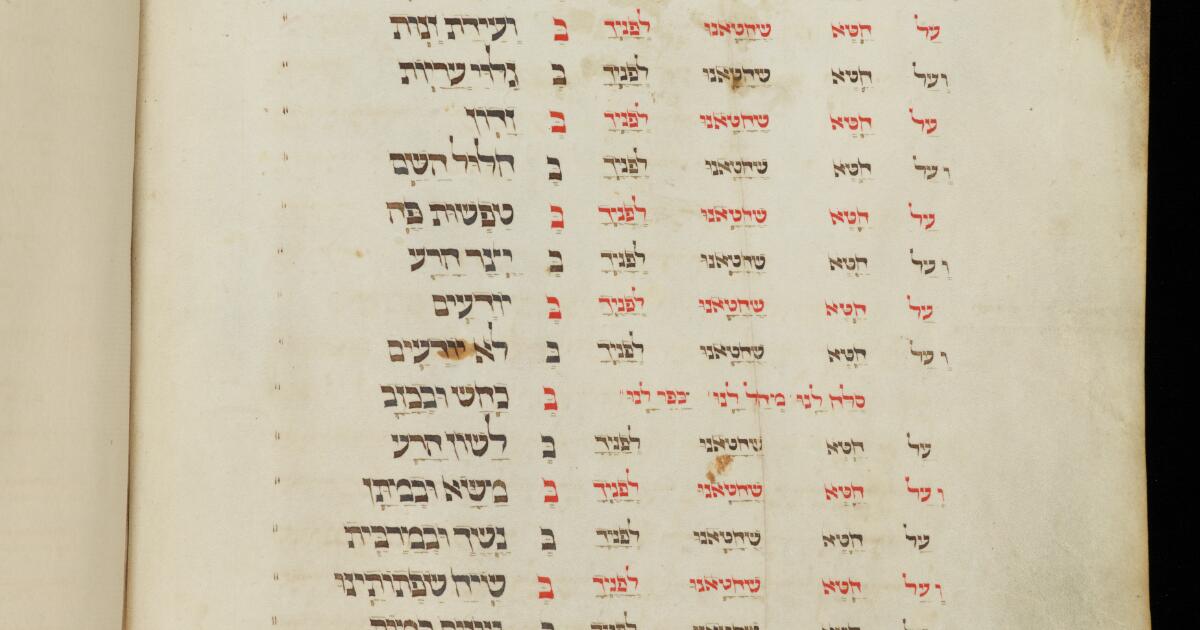 על חטא שחטאנו לפניך ב ועידת זנות
ועל חטא שחטאנו לפניך ב גלוי עריות
על חטא שחטאנו לפניך ב זדון
ועל חטא שחטאנו לפניך ב חלול השם
על חטא שחטאנו לפניך ב טפשות פה
ועל חטא שחטאנו לפניך ב יצר הרע
על חטא שחטאנו לפניך ב יודעים
ועל חטא שחטאנו לפניך ב לא יודעים
סלח לנו מחל לנו כפר לנו ב כחש ובכזב
על חטא שחטאנו לפניך ב לשון הרע
ועל חטא שחטאנו לפניך ב משא ובמתן
על חטא שחטאנו לפניך ב נשך ובמרבית
ועל חטא שחטאנו לפניך ב שיח שפתותינו